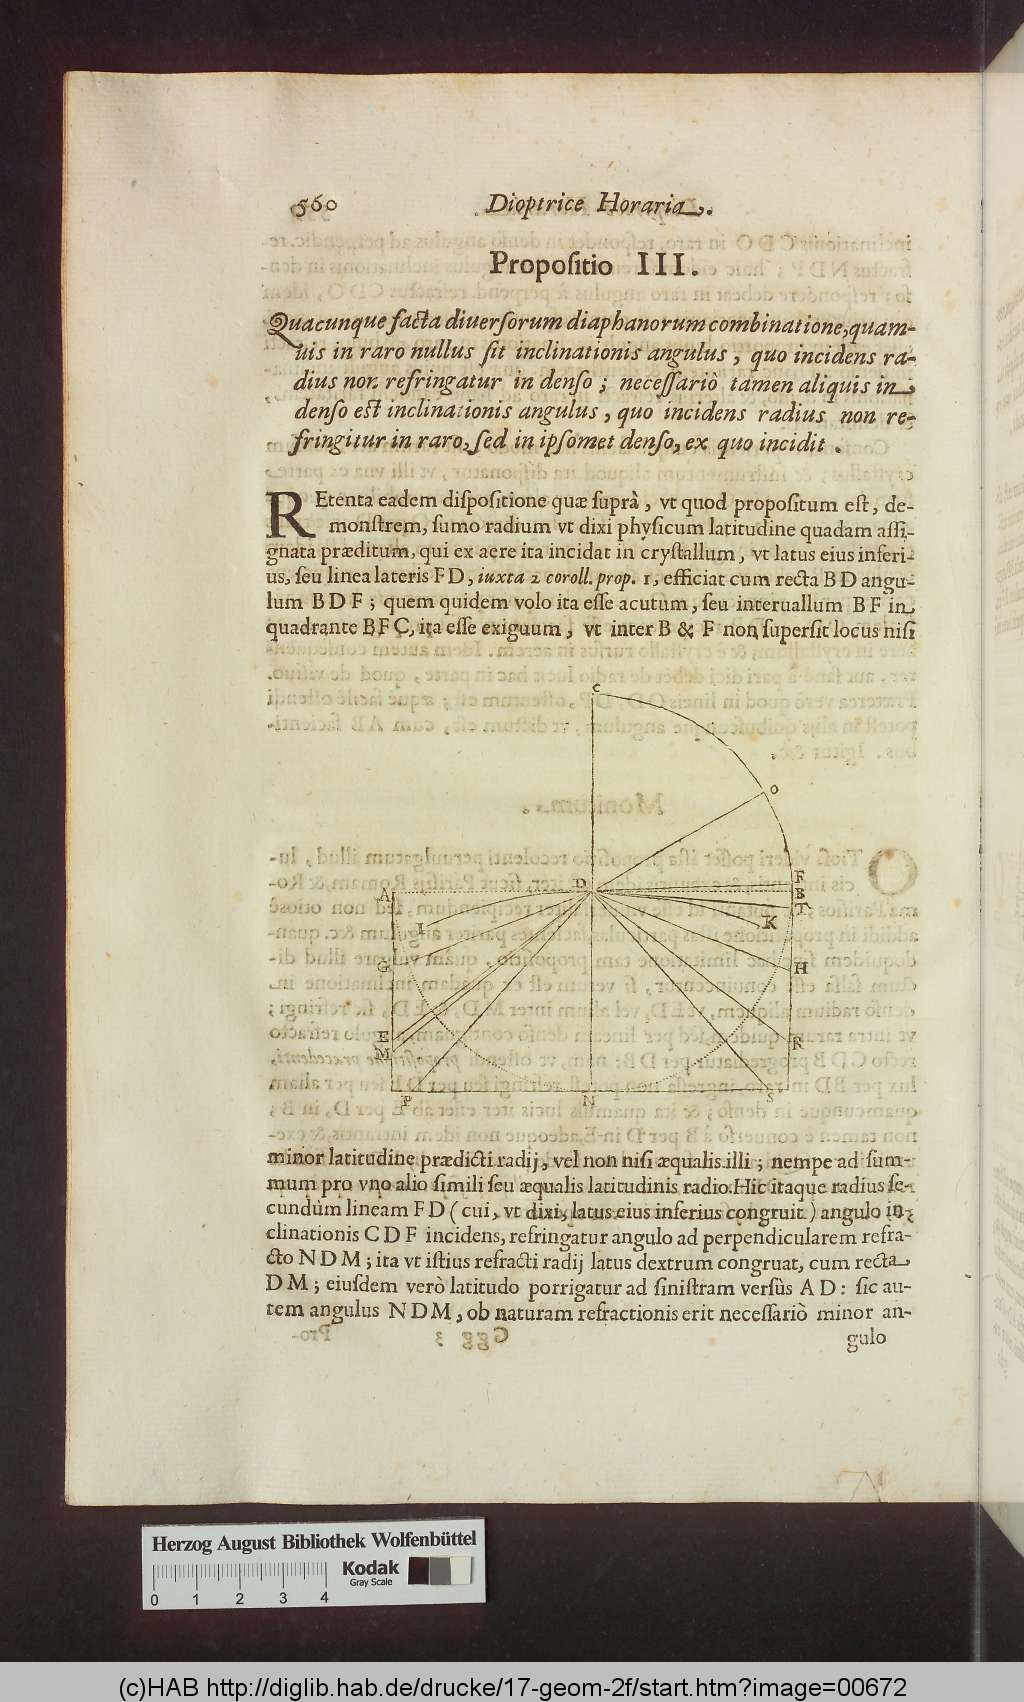 560 Dioptrice Horaria.
Propositio III.
Quacunque facta diuersorum diaphanorum combinatione, quam-
uis in raro nullus sit inclinationis angulus, quo incidens ra-
dius non refringatur in denso; necessariò tamen aliquis in
denso est inclinationis angulus, quo incidens radius non re-
fringitur in raro, sed in ipsomet denso, ex quo incidit.
REtenta eadem dispositione quæ suprà, vt quod propositum est, de-
monstrem, sumo radium vt dixi physicum latitudine quadam assi-
gnata præditum, qui ex aere ita incidat in crystallum, vt latus eius inferi-
us, seu linea lateris F D, iuxta 2 coroll. prop. 1, efficiat cum recta B D angu-
lum B D F; quem quidem volo ita esse acutum, seu interuallum B F in
quadrante B F C, ita esse exiguum, vt inter B & F non supersit locus nisi
C
O
F
D
B
A
T
K
I
G
H
E
R
M
P
N
S
minor latitudine prædicti radij, vel non nisi æqualis illi; nempe ad sum-
mum pro vno alio simili seu æqualis latitudinis radio. Hic itaque radius se-
cundùm lineam F D (cui, vt dixi, latus eius inferius congruit) angulo in-
clinationis C D F incidens, refringatur angulo ad perpendicularem refra-
cto N D M; ita vt istius refracti radij latus dextrum congruat, cum recta
D M; eiusdem verò latitudo porrigatur ad sinistram versùs A D: sic au-
tem angulus N D M, ob naturam refractionis erit necessariò minor an-
gulo
Herzog August Bibliothek Wolfenbüttel
Kodak
Gray Scale
0 1 2 3 4
(c)HAB http://diglib.hab.de/drucke/17-geom-2f/start.htm?image=00672